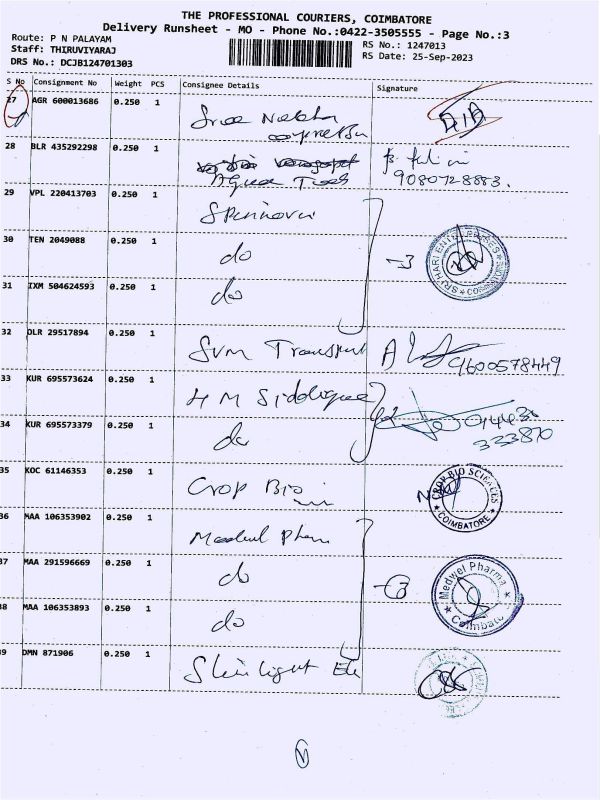 THE PROFESSIONAL COURIERS, COIMBATORE
Delivery Runsheet - MO - Phone No.:0422-3505555 - Page No.:3
Route: P N PALAYAM
RS No.: 1247013
Staff: THIRUVIYARAJ
RS Date: 25-Sep-2023
DRS No.: DCJB124701303
S No Consignment No Weight PCS Consignee Details Signature
27 AGR 600013686 0.250 1 Sree
28 BLR 435292298 0.250 1
9080728883.
29 VPL 220413703 0.250 1
30 TEN 2049088 0.250 1 do -3 SRI HARI ENTERPRISES
31 IXM 504624593 0.250 1 do
32 DLR 29517894 0.250 1 Svm Transport 9600578449
33 KUR 695573624 0.250 1 H M Siddique
34 KUR 695573379 0.250 1 do
333870
35 KOC 61146353 0.250 1 Crop Bio CROP BIO SCIENCES COIMBATORE
36 MAA 106353902 0.250 1
37 MAA 291596669 0.250 1 do Medwel Pharma Coimbatore
38 MAA 106353893 0.250 1 do
39 DMN 871906 0.250 1